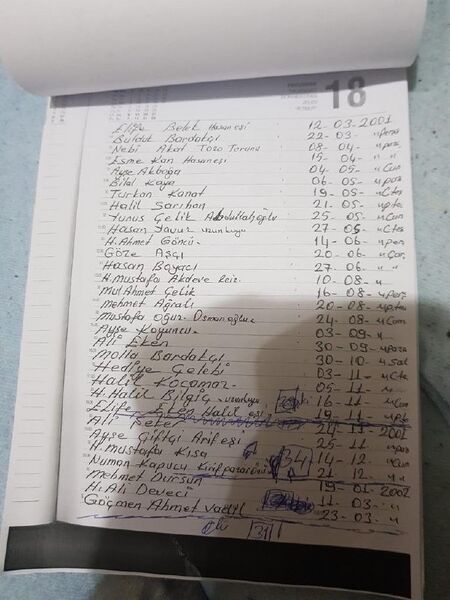 18
Elife Belek Hasan eşi 12-03-2001
Buldut Bardakçı 22-03- "
Nebi Akat Toso Torunu 08-04- "
Esme Kan Hasan eşi 15-04 " "
Ayşe Akboğa 04-05 "Cum
Bilal Kaya 06-05- "paz
Türkan Kanat 19-05 "Cts
Halil Sarıhan 21-05 "pts
Yunus Çelik Abdullahoğlu 25-05- "Cum
Hasan Yavuz uzunkuyu 27-05 "Cts
H. Ahmet Göncü 14-06 "per
Göze Aşçı 20-06 "Çar
Hasan Boyacı 27-06 " "
H. mustafa Akdeve Reiz 10-08- "
Mul Ahmet Çelik 16-08- "Per
mehmet Ağralı 20-08 "pts
mustafa Oğuz Osmanoğlu 24-08 "Cum
Ayşe Koyuncu 03-09 "
Ali Eken 30-09 "paza
Molla Bardakçı 30-10 "Sal
Hediye Çelebi 03-11- "Cts
Halil Koçamaz 05-11 "
H. Halil Bilgiç uzunkuyu 16-11 "Cu
Elife Eken Halil eşi 19-11 "pts
Ali Peker 24-11 2001
Ayşe Çiftçi Arif eşi 25-11 "paz
H. mustafa Kısa 14-12 "Cum
Numan Kapucu Kirifpazarönü 34 21-12 "
Mehmet Dursun 19-01-2002
H. Ali Deveci 11-03- "
Göçmen Ahmet Vadil 23-03- "
ölü 31